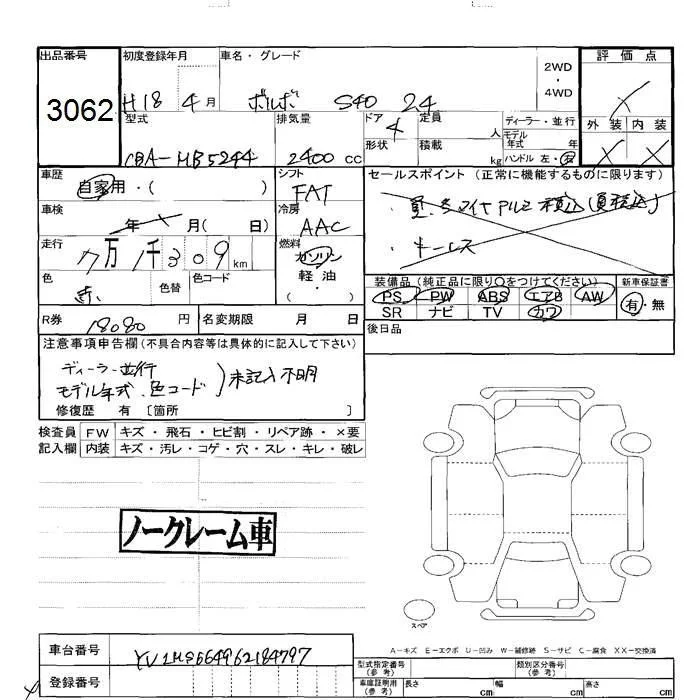 出品番号 初度登録年月 車名・グレード 2WD・4WD 評価点
3062 H18 4月 ボルボ S40 2.4 X
型式 排気量 ドア 定員 人 ディーラー・並行 外装 内装
モデル年式 年
CBA-MB5244 2400cc 4 形状 積載 kg ハンドル 左・右 X X
車歴 自家用・( ) シフト FAT セールスポイント(正常に機能するものに限ります)
車検 年 月( 日) 冷房 AAC
・キーレス
走行 7万1千309km 燃料 ガソリン・軽油
色 赤 色替 色コード ( )
装備品(純正品に限り○をつけてください) 新車保証書
PS PW ABS エアB AW 有・無
SR ナビ TV カワ
R券 18080円 名変期限 月 日 後日品
注意事項申告欄(不具合内容等は具体的に記入して下さい)
ディーラー並行
モデル年式、色コード )未記入不明
修復歴 有〔箇所 〕
検査員 FW キズ・飛石・ヒビ割・リペア跡・×要
記入欄 内装 キズ・汚レ・コゲ・穴・スレ・キレ・破レ
ノークレーム車
スペア
A-キズ E-エクボ U-凹み W-補修跡 S-サビ C-腐食 XX-交換済
車台番号 YV1MS664962184797
登録番号
型式指定番号(参考) 類別区分番号(参考)
車庫証明用(参考) 長さ cm 幅 cm 高さ cm